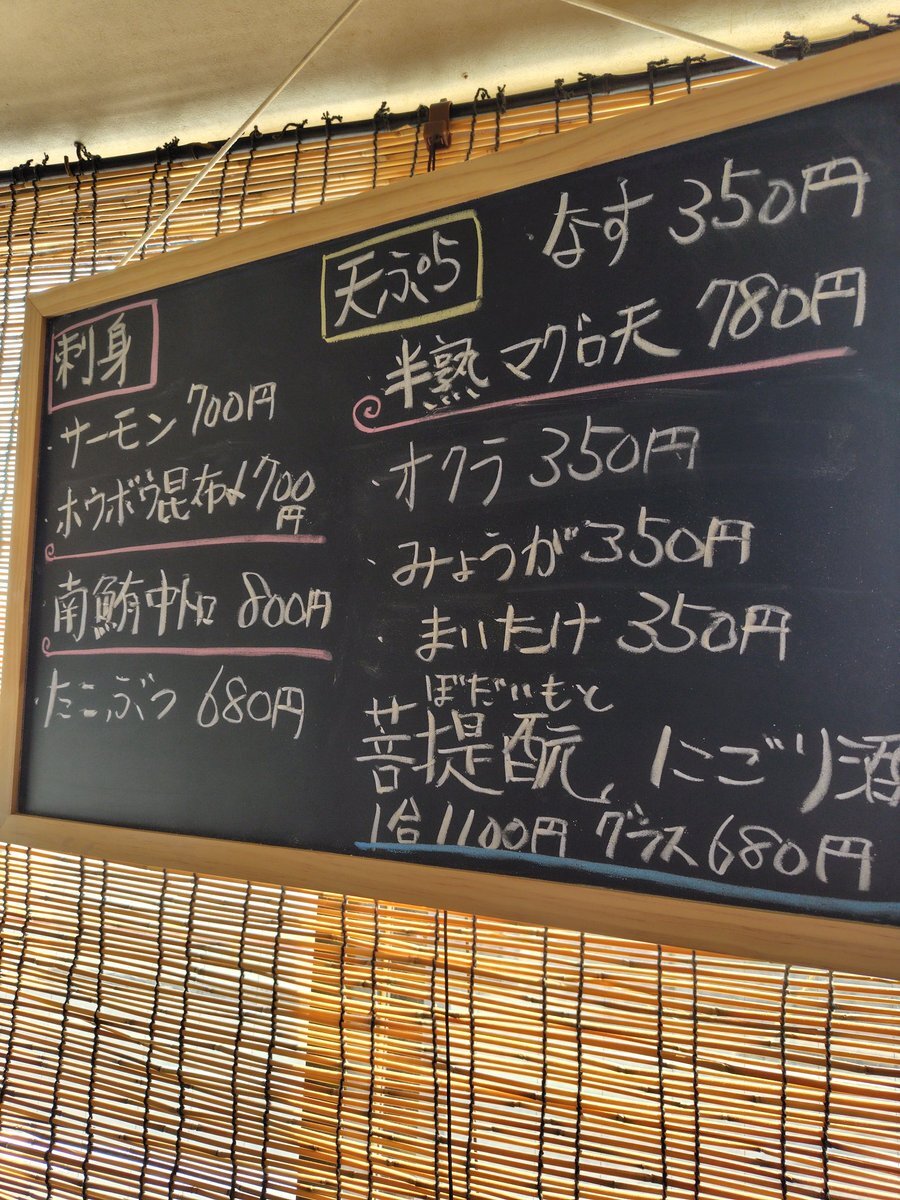 刺身
・サーモン 700円
・ホウボウ昆布〆 700円
・南鮪中トロ 800円
・たこぶつ 680円
天ぷら
・なす 350円
・半熟マグロ天 780円
・オクラ 350円
・みょうが 350円
・まいたけ 350円
ぼだいもと
菩提酛、にごり酒
1合 1100円 グラス 680円